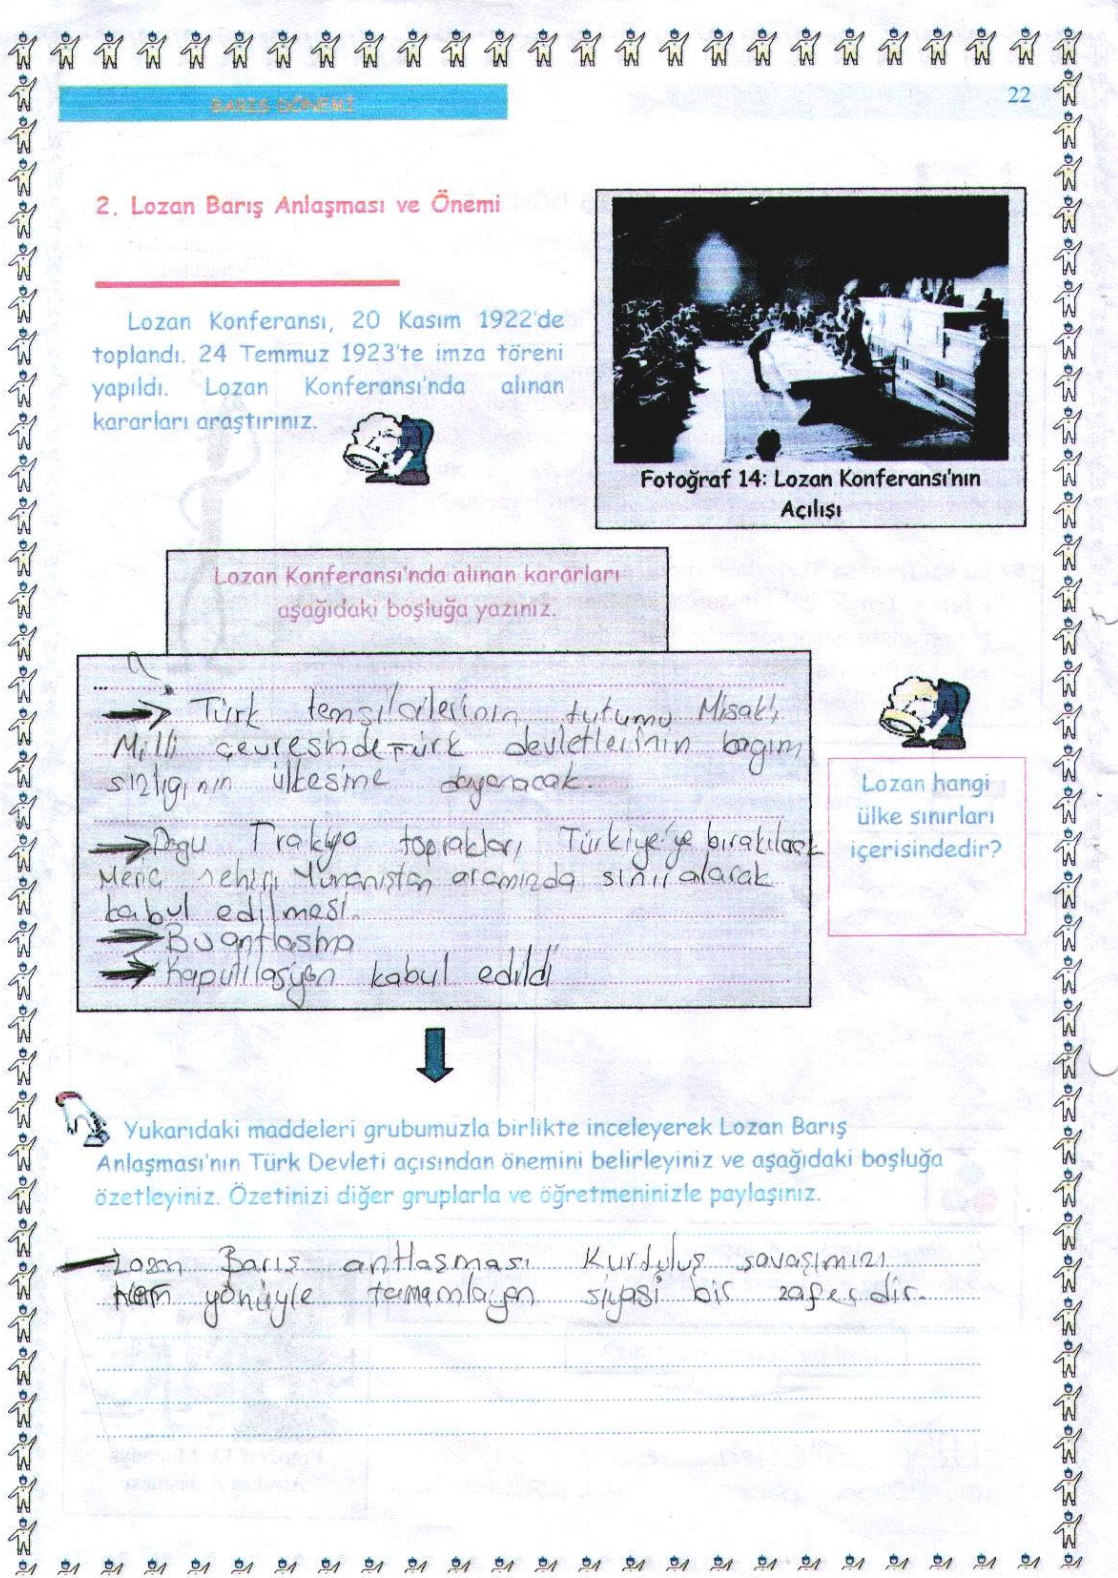 BARIŞ DÖNEMİ
22
2. Lozan Barış Anlaşması ve Önemi
Lozan Konferansı, 20 Kasım 1922'de
toplandı. 24 Temmuz 1923'te imza töreni
yapıldı. Lozan Konferansı'nda alınan
kararları araştırınız.
Fotoğraf 14: Lozan Konferansı'nın
Açılışı
Lozan Konferansı'nda alınan kararları
aşağıdaki boşluğa yazınız.
Türk temsilcilerinin tutumu Misakı
Milli çevresinde Türk devletlerinin bagım
sızlıgının ülkesine dayanacak.
Dogu Trakya toprakları Türkiye'ye bırakılacak
Meriç nehiri Yunanistan aramızda sınır olarak
kabul edilmesi.
Bu antlaşma
Kapütilasyon kabul edildi
Lozan hangi
ülke sınırları
içerisindedir?
Yukarıdaki maddeleri grubumuzla birlikte inceleyerek Lozan Barış
Anlaşması'nın Türk Devleti açısından önemini belirleyiniz ve aşağıdaki boşluğa
özetleyiniz. Özetinizi diğer gruplarla ve öğretmeninizle paylaşınız.
Lozan Barış antlaşması Kurduluş savaşımızı
her yönüyle tamamlayan siyasi bir zaferdir.